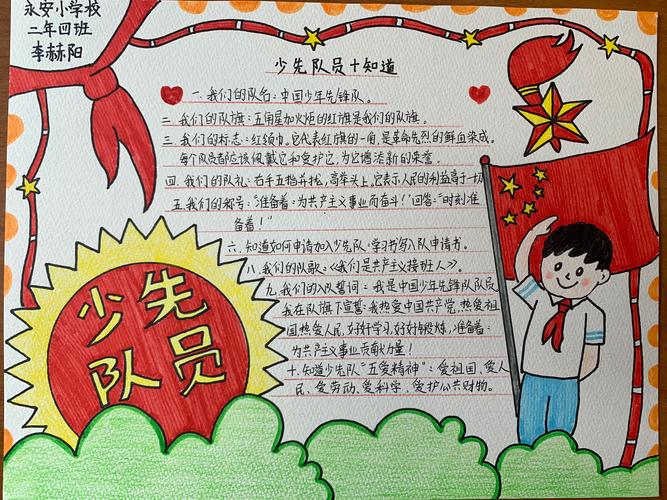 永安小学校
二年四班
李赫阳
少先队员十知道
一.我们的队名:中国少年先锋队。
二.我们的队旗:五角星加火炬的红旗是我们的队旗。
三.我们的标志:红领巾。它代表红旗的一角,是革命先烈的鲜血染成。
每个队员都应该佩戴它和爱护它,为它增添新的荣誉。
四.我们的队礼:右手五指并拢,高举头上,它表示人民的利益高于一切
五.我们的称号:“准备着:为共产主义事业而奋斗!”回答:“时刻准
备着!”
六.知道如何申请加入少先队.学习书写入队申请书。
八.我们的队歌:《我们是共产主义接班人》。
九.我们的入队誓词:我是中国少年先锋队队员
我在队旗下宣誓:我热爱中国共产党,热爱祖
国,热爱人民,好好学习,好好锻炼,准备着:
为共产主义事业贡献力量!
十.知道少先队“五爱精神”:爱祖国、爱人
民、爱劳动、爱科学、爱护公共财物。
少先
队员